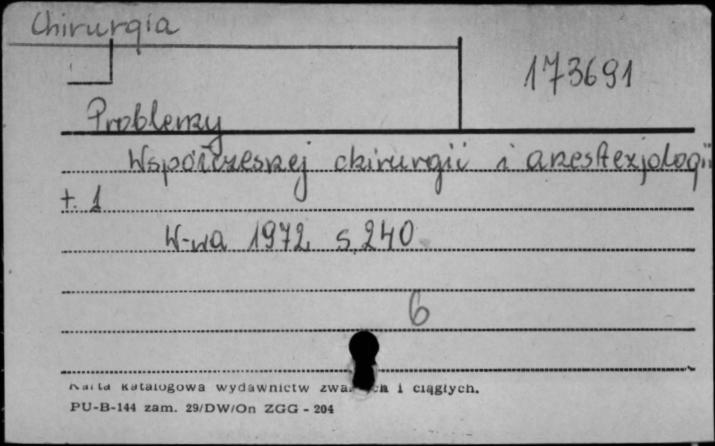 Chirurgia
173691
Problemy
Współczesnej chirurgii i anestezjologii
t. 1
W-wa 1972 s. 240
6
Karta katalogowa wydawnictw zwartych i ciągłych.
PU-B-144 zam. 29/DW/On ZGG - 204